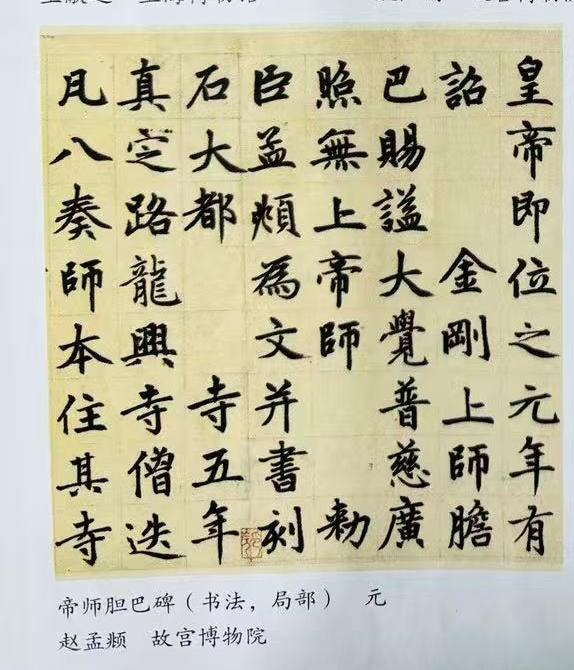 皇帝即位之元年有
詔 金剛上師膽
巴賜謚大覺普慈廣
照無上帝師 勅
臣孟頫為文并書刻
石大都 寺五年
真定路龍興寺僧迭
凡八奏師本住其寺
帝师胆巴碑（书法，局部） 元
赵孟頫 故宫博物院